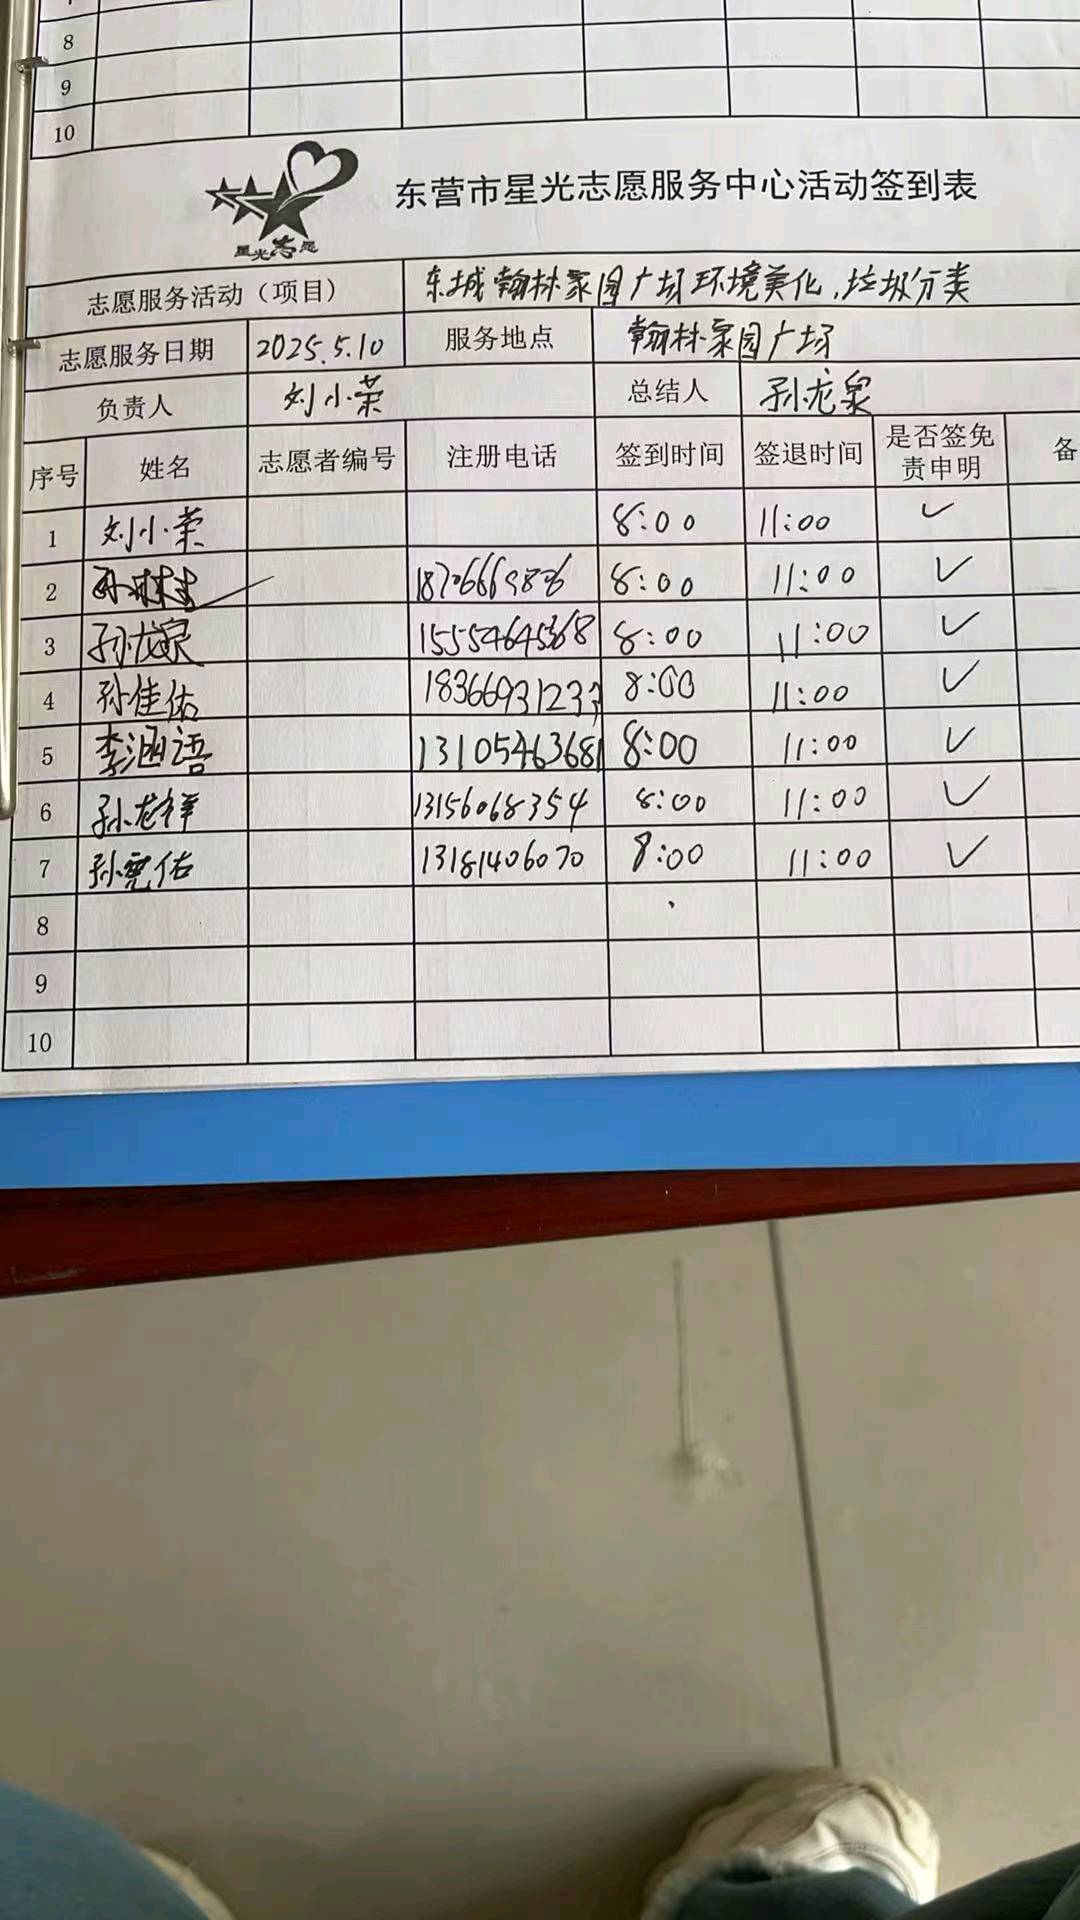 8
9
10
星光志愿
东营市星光志愿服务中心活动签到表
志愿服务活动（项目） 东城翰林家园广场环境美化,垃圾分类
志愿服务日期 2025.5.10 服务地点 翰林家园广场
负责人 刘小荣 总结人 孙龙泉
序号 姓名 志愿者编号 注册电话 签到时间 签退时间 是否签免责申明 备
1 刘小荣 8:00 11:00 ✓
2 8:00 11:00 ✓
3 孙龙泉 8:00 11:00 ✓
4 孙佳佑 8:00 11:00 ✓
5 李涵语 13105463681 8:00 11:00 ✓
6 孙龙祥 13156068354 8:00 11:00 ✓
7 13181406070 8:00 11:00 ✓
8
9
10